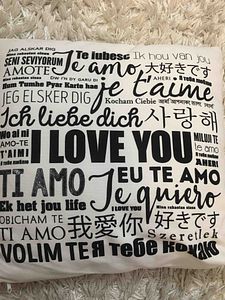 JAG ALSKAR DIG
Te iubesc
Ik hou van jou
SENI SEVIYORUM
Te amo
大好きです
AMOTE
Hum Tumhe Pyar Karte hae
je t'aime
JEG ELSKER DIG
Kocham Ciebie
Ich liebe dich
사랑해
Wo ai ni
AMO-TE
T'AIMI
I LOVE YOU
MILUJU TE
TI AMO
EU TE AMO
Te quiero
Ek het jou life
OBICHAM TE
我愛你
好きです
TI AMO
Szeretlek
VOLIM TE
Я тебе кохаю